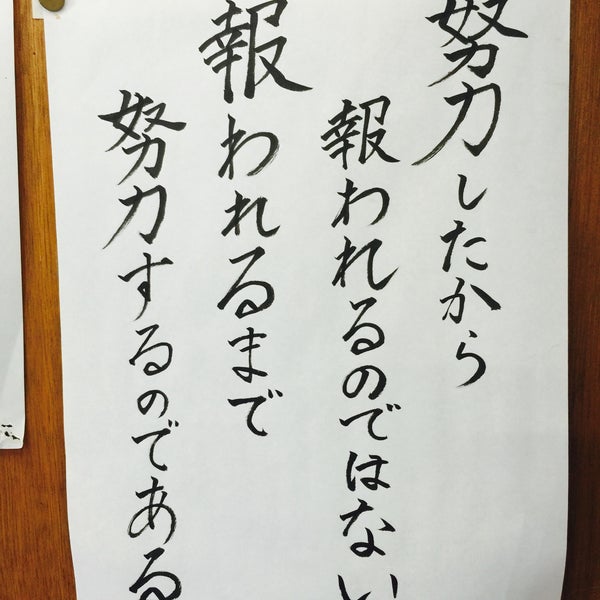 努力したから
報われるのではない
報われるまで
努力するのである